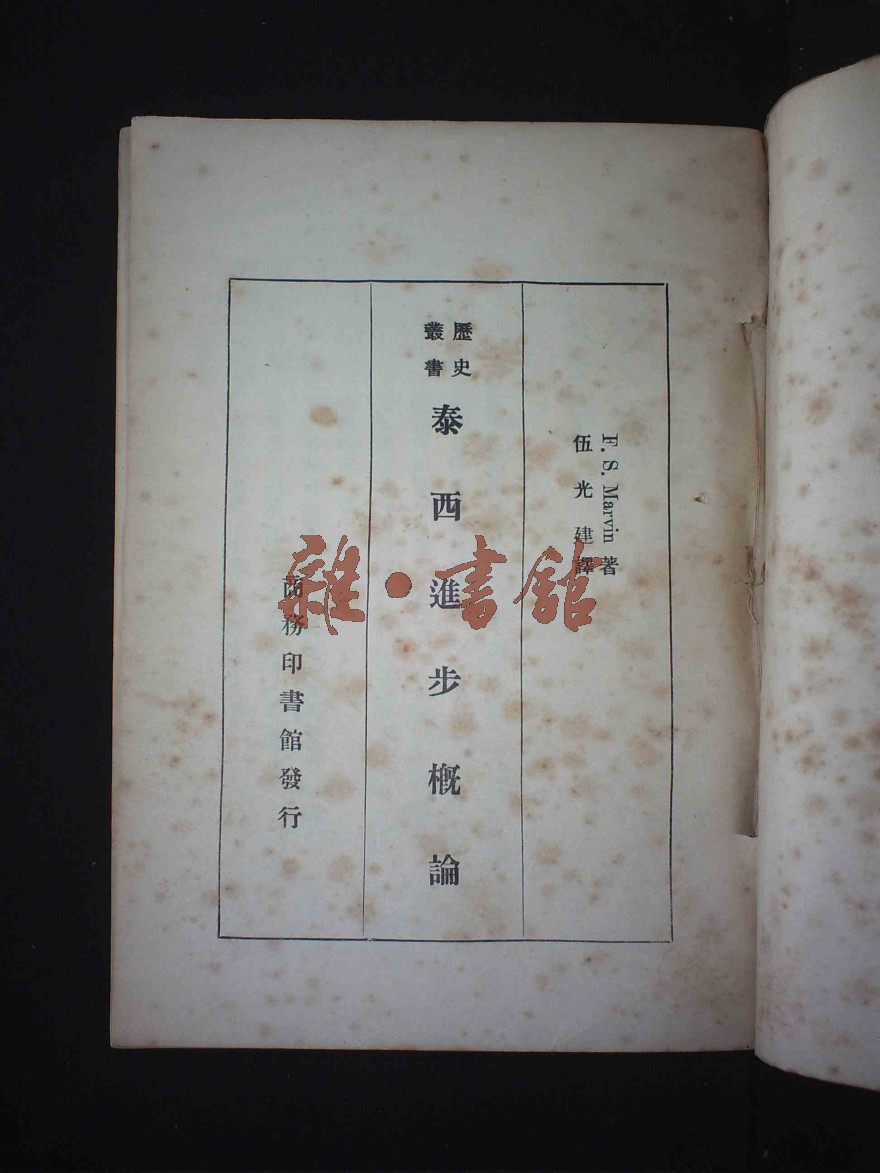 F. S. Marvin 著
伍光建譯
歷史
叢書
泰西進步概論
商務印書館發行
雜·書館